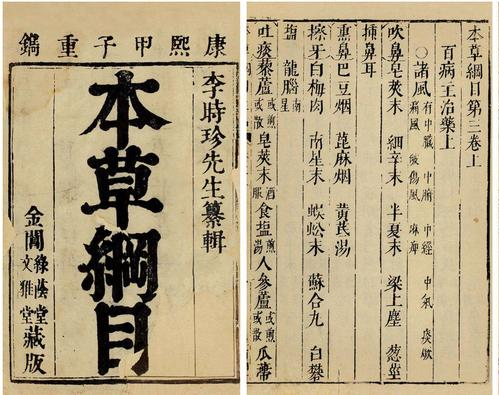 康熙甲子重鐫
李時珍先生纂輯
本草綱目
金閶
綠蔭堂
文雅堂
藏版
本草綱目第三卷上
百病主治藥上
○諸風 有中臟 中腑 中經 中氣 痰厥
痛風 破傷風 麻痺
吹鼻皂莢末 細辛末 半夏末 梁上塵 葱莖
插鼻耳
熏鼻巴豆烟 蓖麻烟 黃芪湯
擦牙白梅肉 南星末 蜈蚣末 蘇合丸 白礬
塩 龍腦南星
吐痰藜蘆或煎或散 皂莢末酒服 食塩煎湯 人參蘆或煎或散 瓜蒂